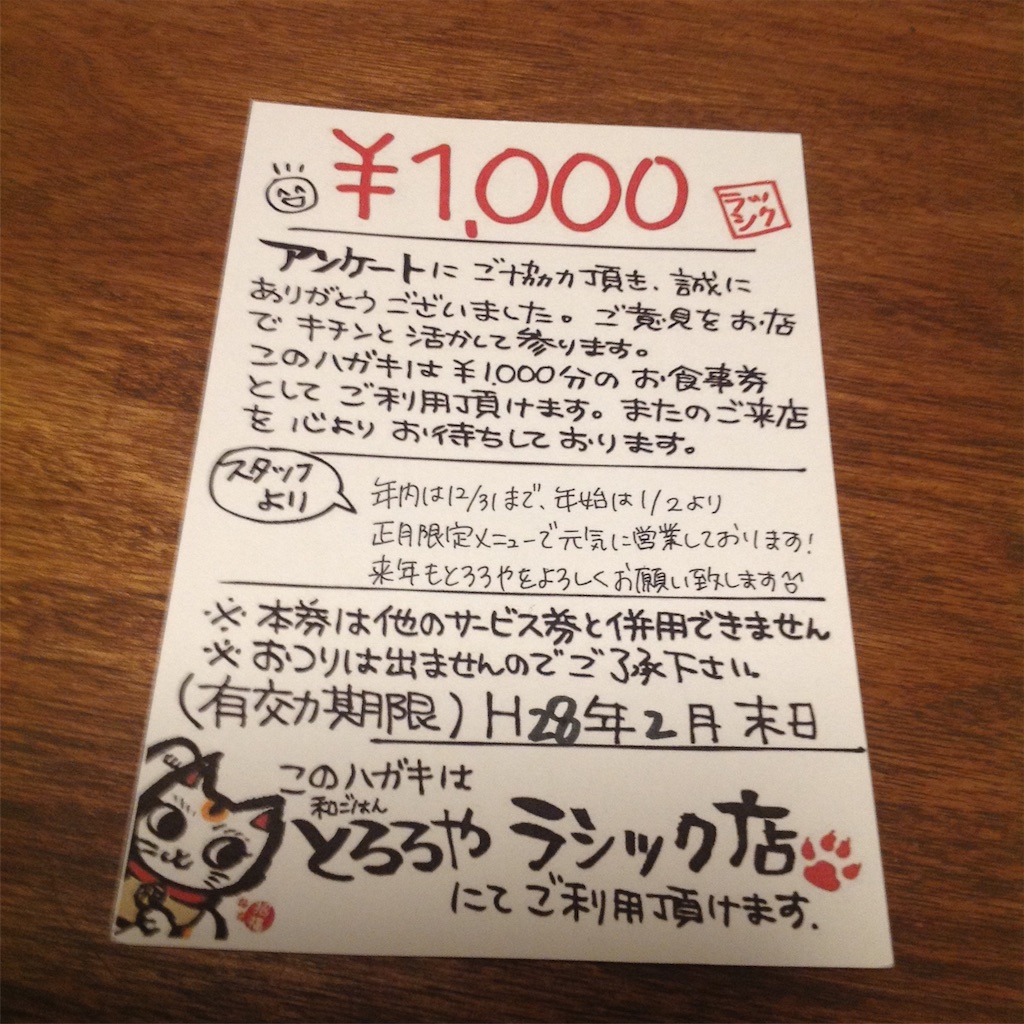 ¥1,000
ラッシク
アンケートにご協力頂き、誠に
ありがとうございました。ご意見をお店
でキチンと活かして参ります。
このハガキは¥1,000分のお食事券
としてご利用頂けます。またのご来店
を心よりお待ちしております。
スタッフ
より
年内は12/31まで、年始は1/2より
正月限定メニューで元気に営業しております!
来年もとろろやをよろしくお願い致します
※本券は他のサービス券と併用できません
※おつりは出ませんのでご了承下さい。
(有効期限)H28年2月末日
このハガキは
和ごはん
とろろや ラシック店
にてご利用頂けます.